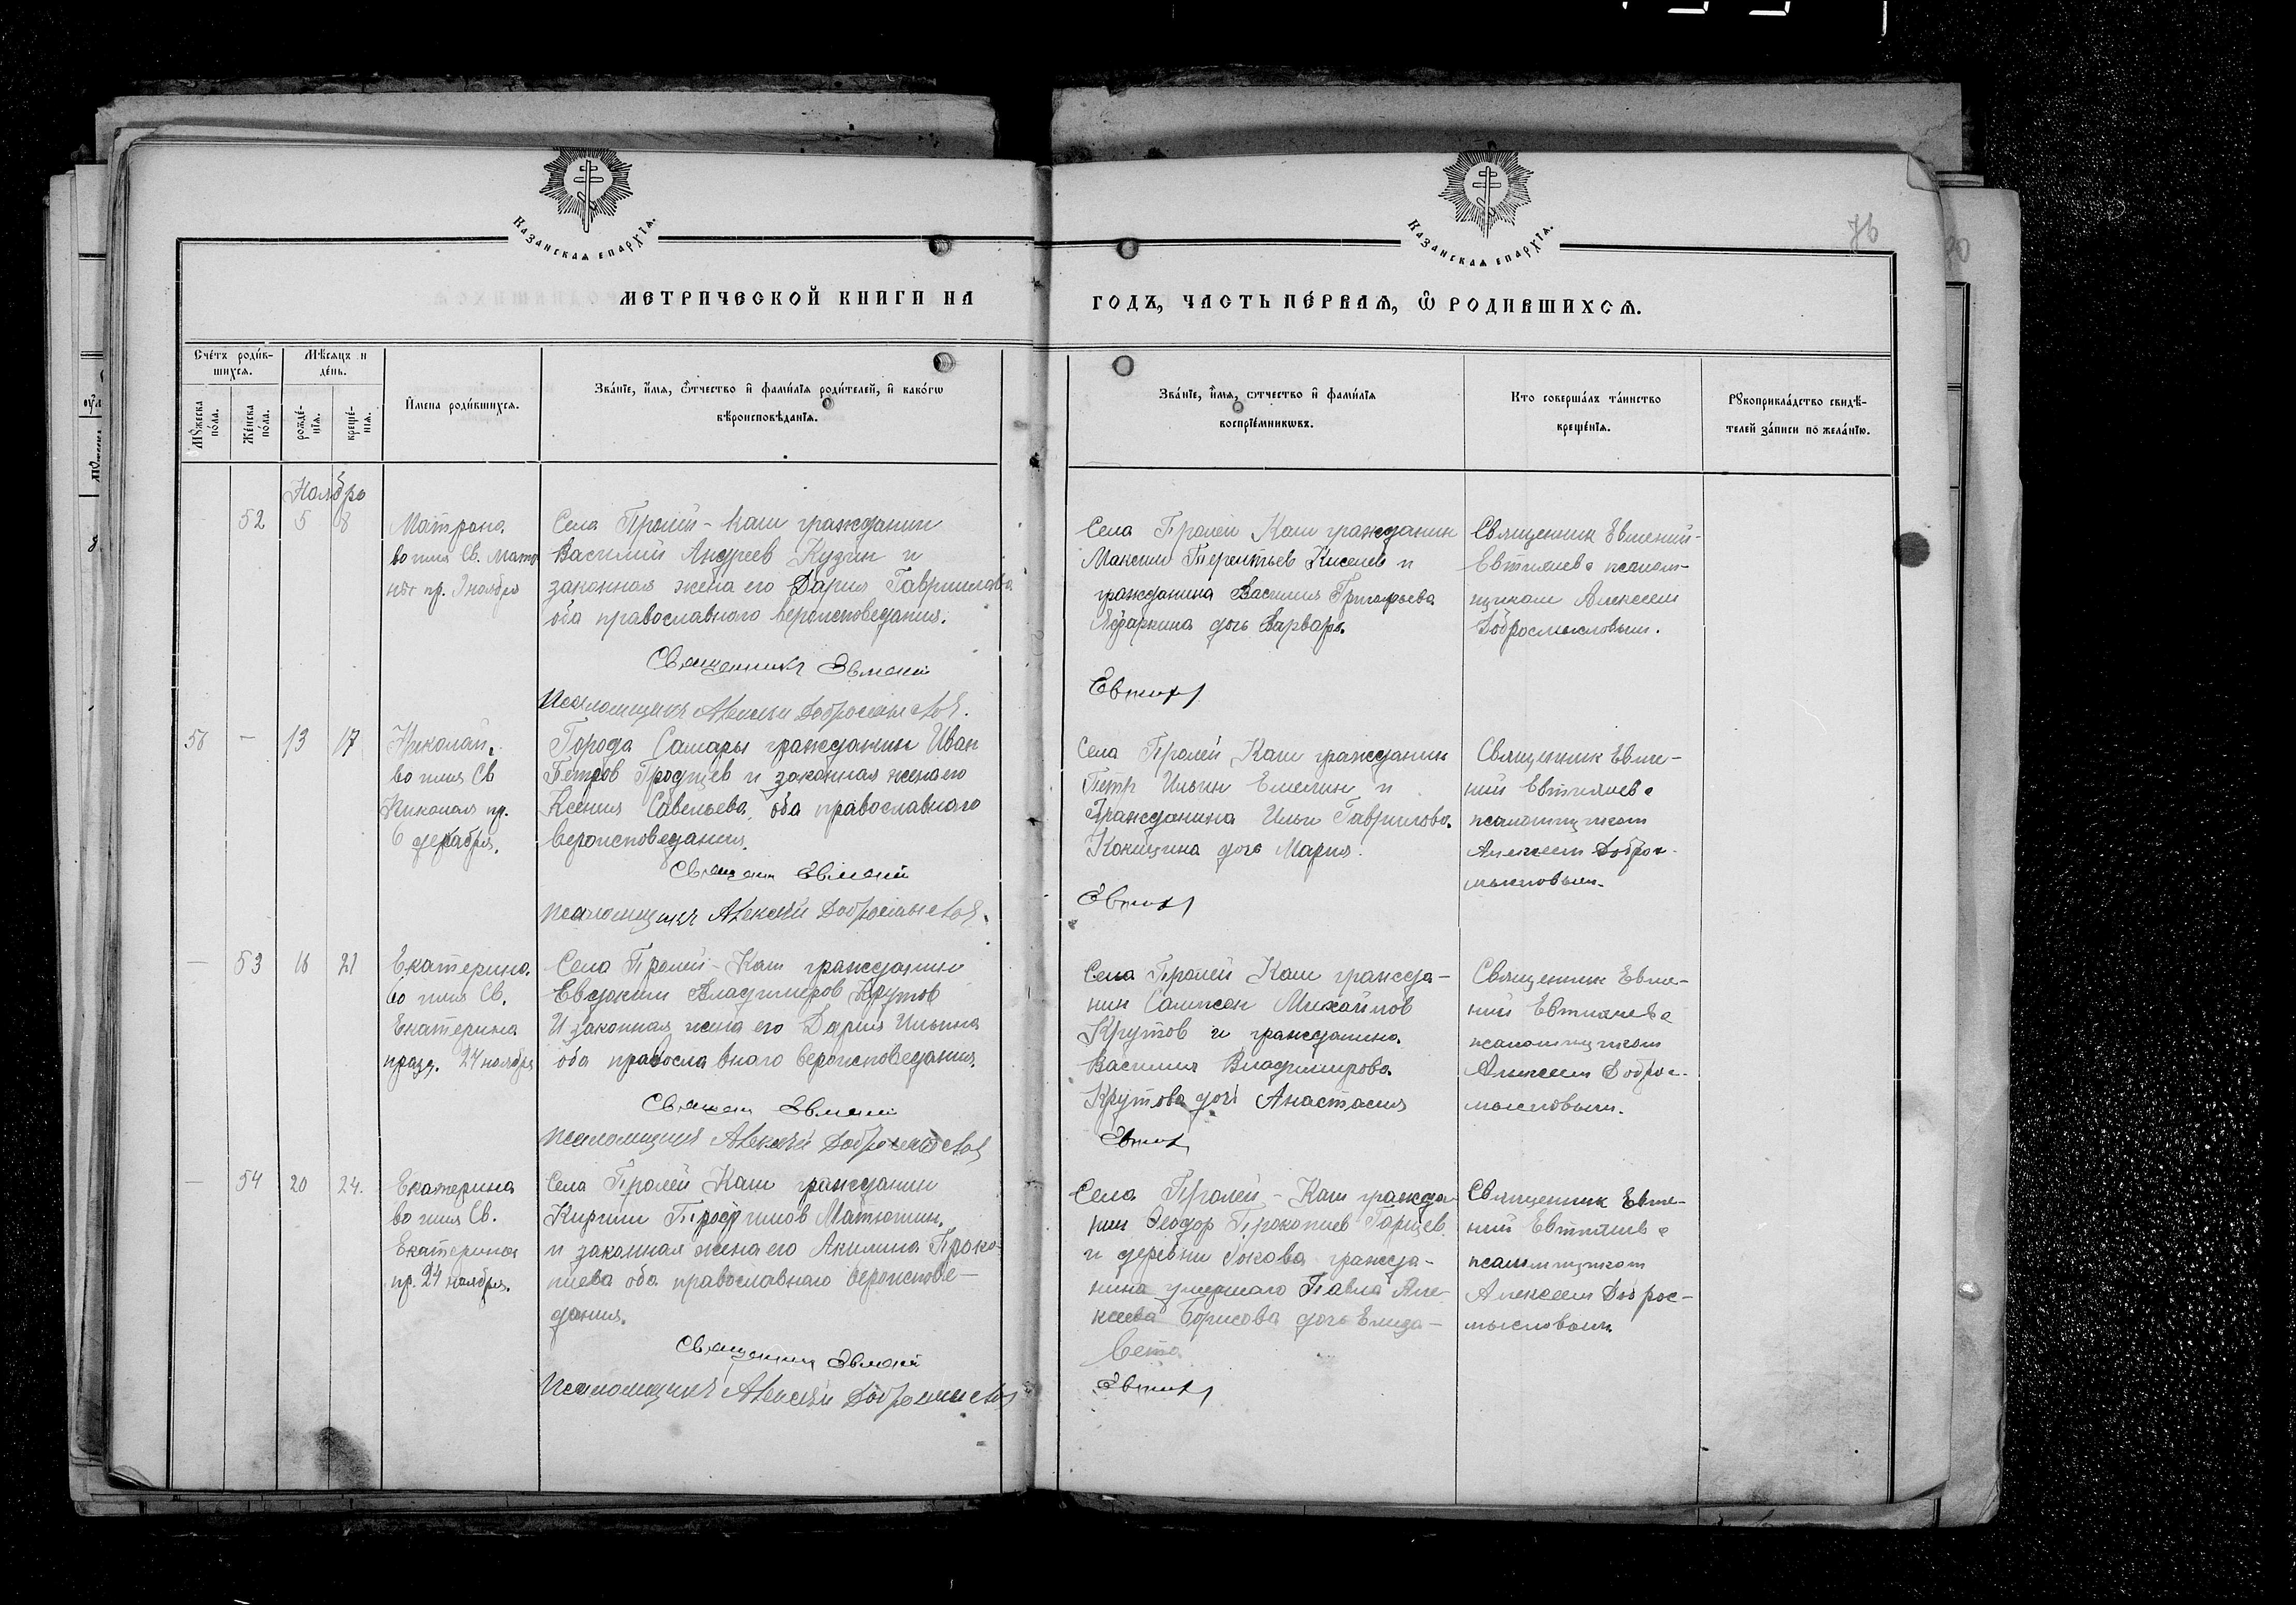 Казанская епархїѧ.
Казанская епархїѧ.
76
МЕТРИЧЕСКОЙ КНИГИ НА
ГОДЪ, ЧАСТЬ ПЕ́РВАѦ, Ѽ РОДИВШИХСѦ.
Сче́тъ роди́в-
шихсѧ.
Мѣ́сѧцъ и
де́нь.
Мꙋ́жеска
по́ла.
Же́нска
по́ла.
рожде́-
нїѧ.
креще́-
нїѧ.
И҆мена роди́вшихсѧ.
Зва́нїе, и҆́мѧ, ѻ҆́тчество и҆ фами́лїѧ роди́телей, и҆ како́гѡ
вѣроисповѣ́данїѧ.
Зва́нїе, и҆́мѧ, ѻ҆́тчество и҆ фами́лїѧ
воспрїе́мникѡвъ.
Кто соверша́лъ та́инство
креще́нїѧ.
Рꙋкоприкла́дство свидѣ́-
телей за́писи по жела́нїю.
Ноября
52 5 8
Матрона
во имя Св. Матро
ны пр. 9 ноября
Села Пролей-Каш гражданин
Василий Андреев Кузин и
законная жена его Дария Гавриилова
оба православного вероисповедания.
Священникъ Евмений
Псаломщикъ Алексѣй Добросмыслов.
Села Пролей Каш гражданин
Максим Терентьев Киселев и
гражданина Василия Григорьева
дочь Варвара.
Евтихі
Священник Евмений
Евтихиев с псалом-
щиком Алексеем
Добросмысловым.
– 13 17
Николай.
во имя Св
Николая пр.
6 декабря.
Города Самары гражданин Иван
Петров и законная жена его
Ксения Савельева, оба православного
вероисповедания.
Священ Евмений
Псаломщикъ Алексѣй Добросмыслов.
Села Пролей Каш гражданин
Петр Ильин Емелин и
Гражданина Ильи Гаврилова
дочь Мария.
Евтихі
Священник Евме-
ний Евтихиев с
псаломщиком
Алексеем Доброс-
мысловым.
– 53 16 21
Екатерина.
во имя Св.
Екатерина
празд. 24 ноября
Села Пролей-Каш гражданин
Евдоким Владимиров Крутов
И законная жена его Дария Ильина
оба православнаго вероисповедания.
Священ Евмений
Псаломщикъ Алексѣй Добросмыслов
Села Пролей Каш гражда-
нин Сампсон Михайлов
Крутов и гражданина.
Василия Владимирова.
Крутова дочь Анастасия
Евтихі
Священник Евме-
ний Евтихиев с
псаломщиком
Алексеем Доброс-
мысловым.
– 54 20 24.
Екатерина
во имя Св.
Екатерина
пр. 24 ноября.
Села Пролей Каш гражданин
Кирилл Трофимов Матюшин.
и законная жена его Акилина Проко-
пиева оба православнаго вероиспове-
дания.
Священник Евмений
Псаломщикъ Алексѣй Добросмыслов
Села Пролей-Каш гражда-
нин Феодор Прокопиев
и деревни гражда-
нина умершаго Павла Але-
ксеева Борисова дочь Елиза-
вета
Евтихі
Священник Евме-
ний Евтихиев с
псаломщиком
Алексеем Доброс-
мысловым